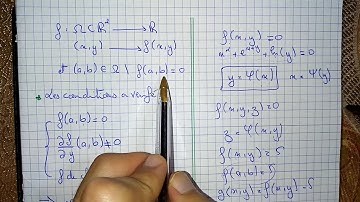 f : Ω ⊂ ℝ² ⟶ ℝ
(x,y) ⟶ f(x,y)
et (a,b) ∈ Ω \ f(a,b)=0
Les conditions a verifi
f(a,b)=0
∂f/∂y (a,b) ≠ 0
f de c
f(x,y)=0
y = φ(x) x = Ψ(y)
f(x,y,z)=0
z = φ(x,y)
f(x,y)=5
f(a,b)=5
g(x,y)=f(x,y)-5